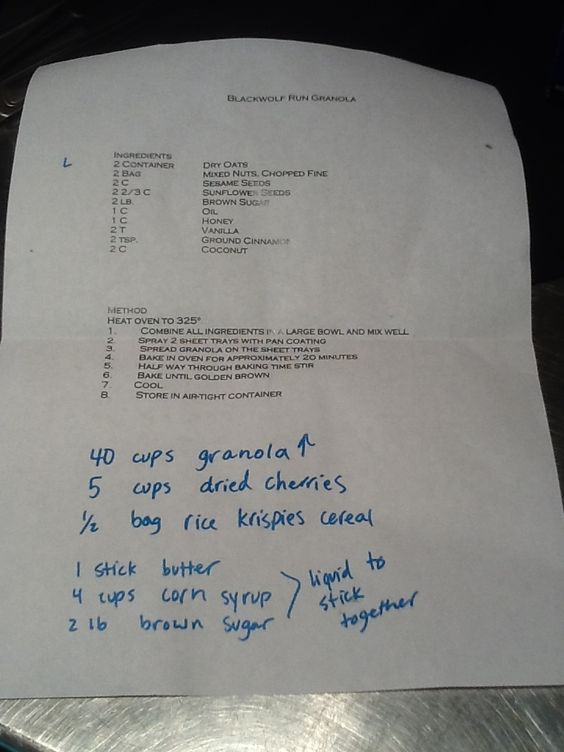 BLACKWOLF RUN GRANOLA
INGREDIENTS
L 2 CONTAINER DRY OATS
2 BAG MIXED NUTS, CHOPPED FINE
2 C SESAME SEEDS
2 2/3 C SUNFLOWER SEEDS
2 LB. BROWN SUGAR
1 C OIL
1 C HONEY
2 T VANILLA
2 TSP. GROUND CINNAMON
2 C COCONUT
METHOD
HEAT OVEN TO 325°
1. COMBINE ALL INGREDIENTS IN A LARGE BOWL AND MIX WELL
2. SPRAY 2 SHEET TRAYS WITH PAN COATING
3. SPREAD GRANOLA ON THE SHEET TRAYS
4. BAKE IN OVEN FOR APPROXIMATELY 20 MINUTES
5. HALF WAY THROUGH BAKING TIME STIR
6. BAKE UNTIL GOLDEN BROWN
7. COOL
8. STORE IN AIR-TIGHT CONTAINER
40 cups granola ↑
5 cups dried cherries
1/2 bag rice krispies cereal
1 stick butter
4 cups corn syrup
2 lb brown sugar
liquid to
stick
together